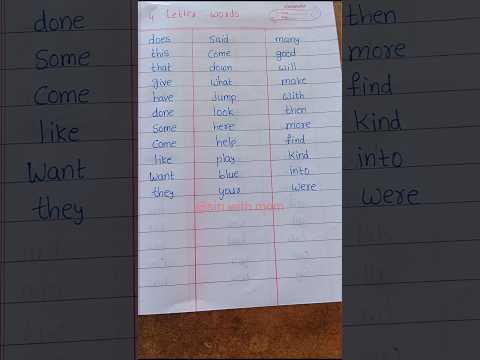 done
Some
Come
like
Want
they
4 Letter Words
does Said many
this Come good
that down will
give what make
have Jump with
done look then
Some here more
Come help find
like play kind
Want blue into
they your were
with mom
then
more
find
kind
into
were